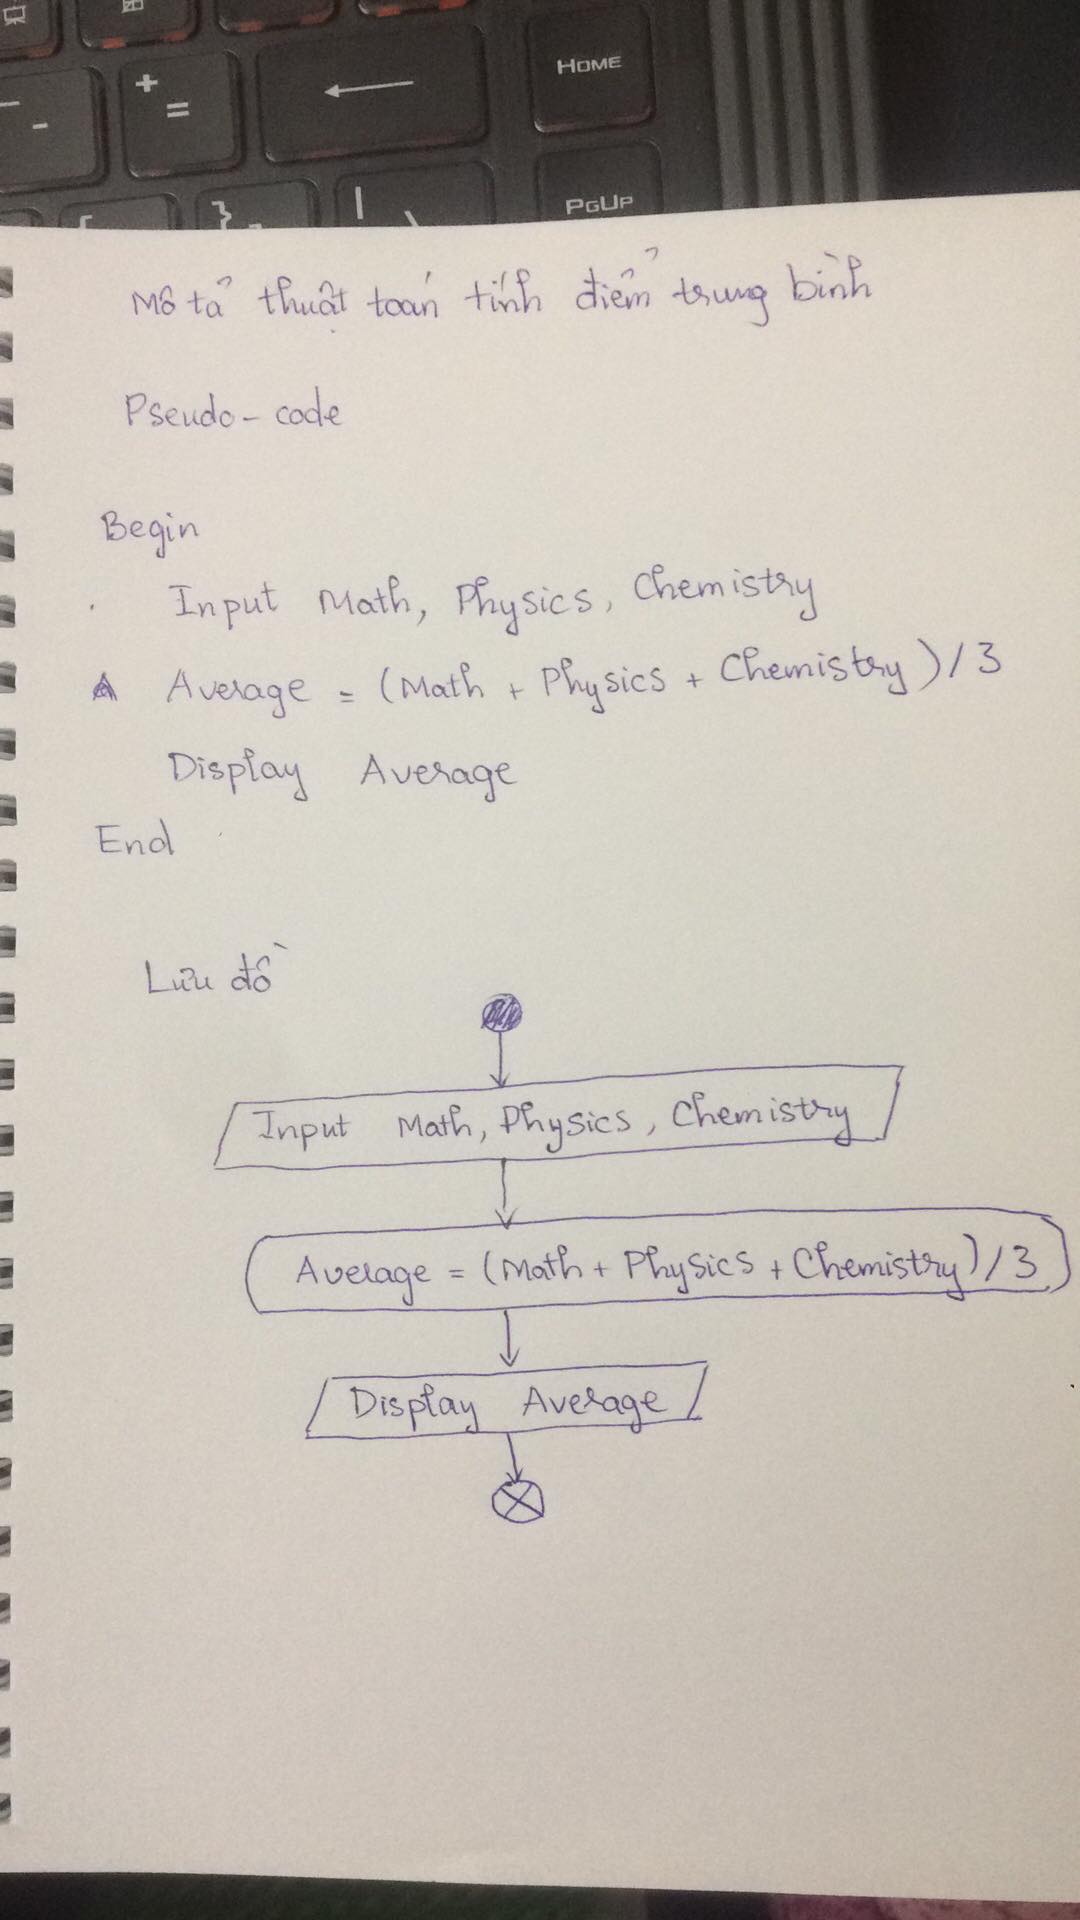 HOME
+
=
-
PGUP
}
|
\
Mô tả thuật toán tính điểm trung bình
Pseudo-code
Begin
Input Math, Physics, Chemistry
Average = (Math + Physics + Chemistry)/3
Display Average
End
Lưu đồ
Input Math, Physics, Chemistry
Average = (Math + Physics + Chemistry)/3
Display Average